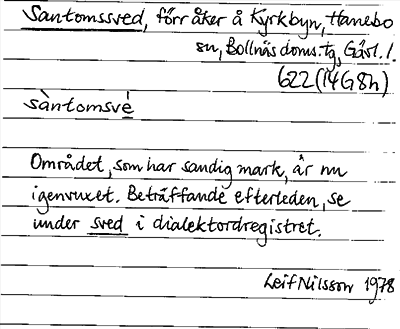 Santomssved, förr åker å Kyrkbyn, Hanebo
sn, Bollnäs doms:tg, Gävl. l.
622 (14G8h)
sàntomsvé
Området, som har sandig mark, är nu
igenvuxet. Beträffande efterleden, se
under sved i dialektordregistret.
Leif Nilsson 1978